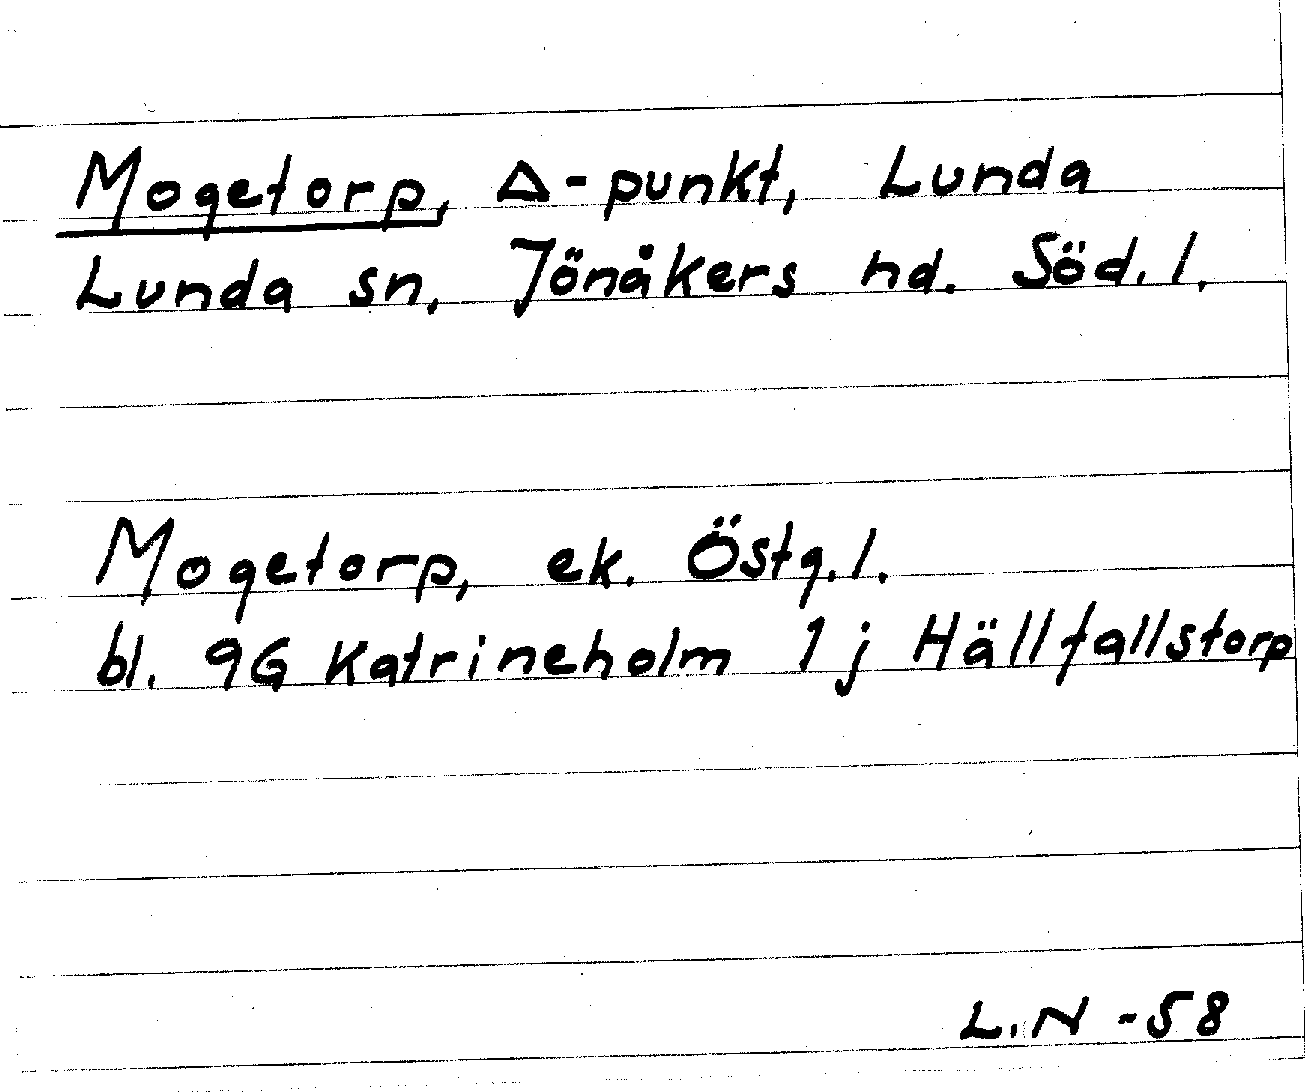 Mogetorp, Δ-punkt, Lunda
Lunda sn, Jönåkers hd. Söd.l.
Mogetorp, ek. Östg.l.
bl. 9G Katrineholm 1j Hällfallstorp
L.N -58